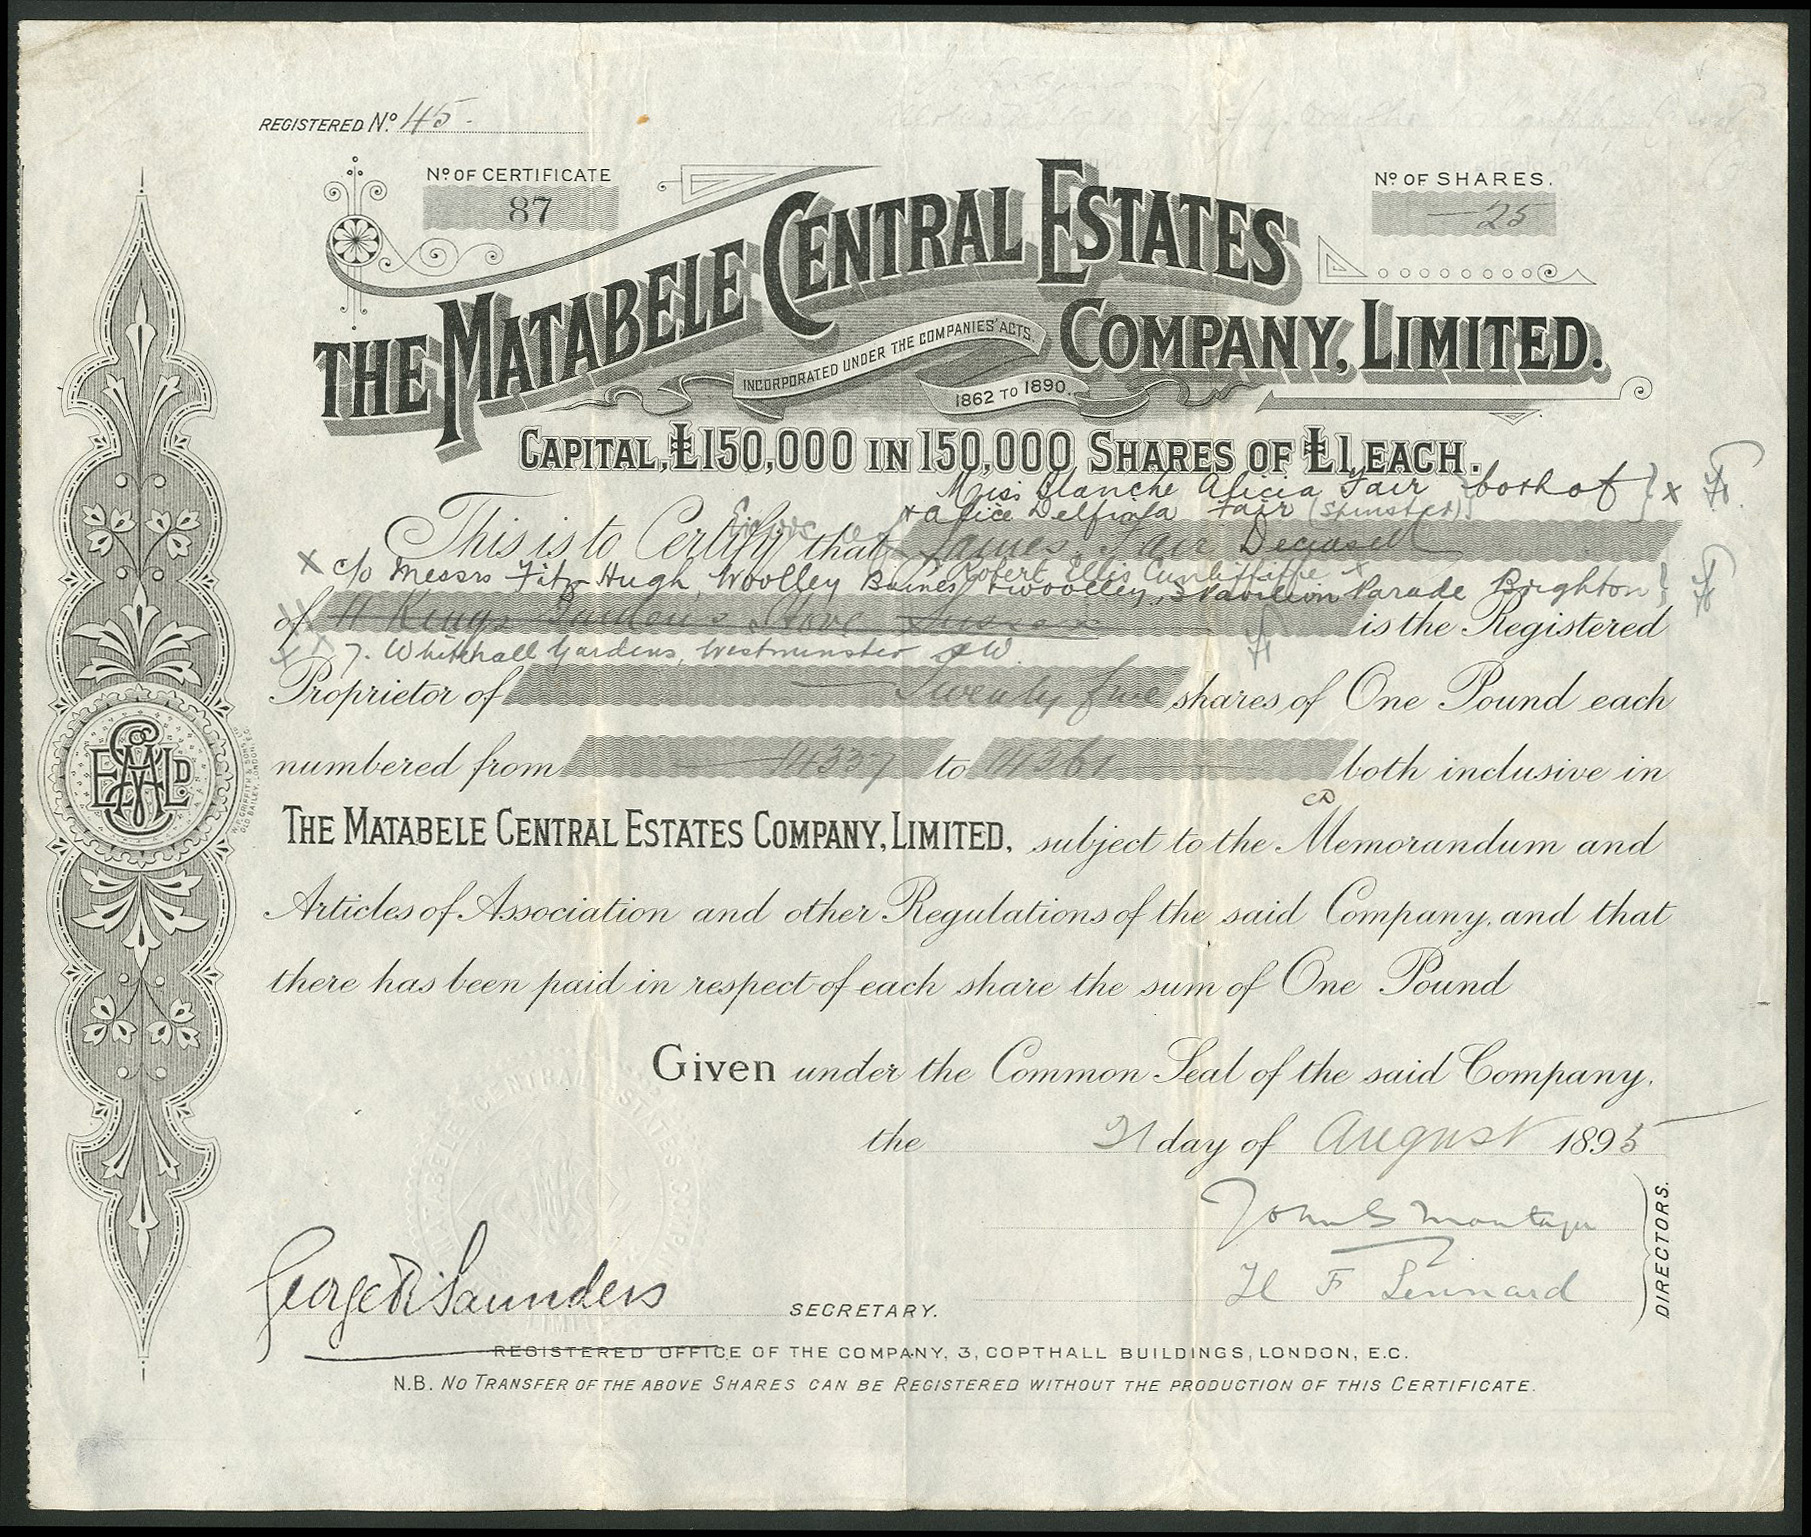 REGISTERED No. 45.
No. OF CERTIFICATE
87
No. OF SHARES.
25
THE MATABELE CENTRAL ESTATES
COMPANY, LIMITED.
INCORPORATED UNDER THE COMPANIES' ACTS.
1862 TO 1890.
CAPITAL, £150,000 IN 150,000 SHARES OF £1 EACH.
Miss Blanche Alicia Fair } both of } x
+ Alice Delfina Fair (Spinster)
This is to Certify that James Fair Deceased
Robert Ellis Cunliffe x
x c/o Messrs Fitz Hugh, Woolley Baines & Woolley, 3 Pavilion Parade Brighton
of 11 Kings Gardens Hove Sussex is the Registered
x x 7. Whitehall Gardens, Westminster SW.
Proprietor of Twenty five shares of One Pound each
numbered from 14337 to 14361 both inclusive in
THE MATABELE CENTRAL ESTATES COMPANY, LIMITED, subject to the Memorandum and
Articles of Association and other Regulations of the said Company, and that
there has been paid in respect of each share the sum of One Pound
Given under the Common Seal of the said Company,
the 21 day of August 1895
John G Montagu
H F Lennard
DIRECTORS.
George R Saunders SECRETARY.
REGISTERED OFFICE OF THE COMPANY, 3, COPTHALL BUILDINGS, LONDON, E.C.
N.B. NO TRANSFER OF THE ABOVE SHARES CAN BE REGISTERED WITHOUT THE PRODUCTION OF THIS CERTIFICATE.